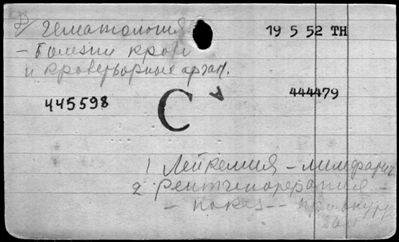 Гематология
19 5 52 TH
– Болезни крови
и кроветворных орган.
445598
444479
C
1 Лейкемия – лимфатич
2 рентгенотерапия –
– показ. –